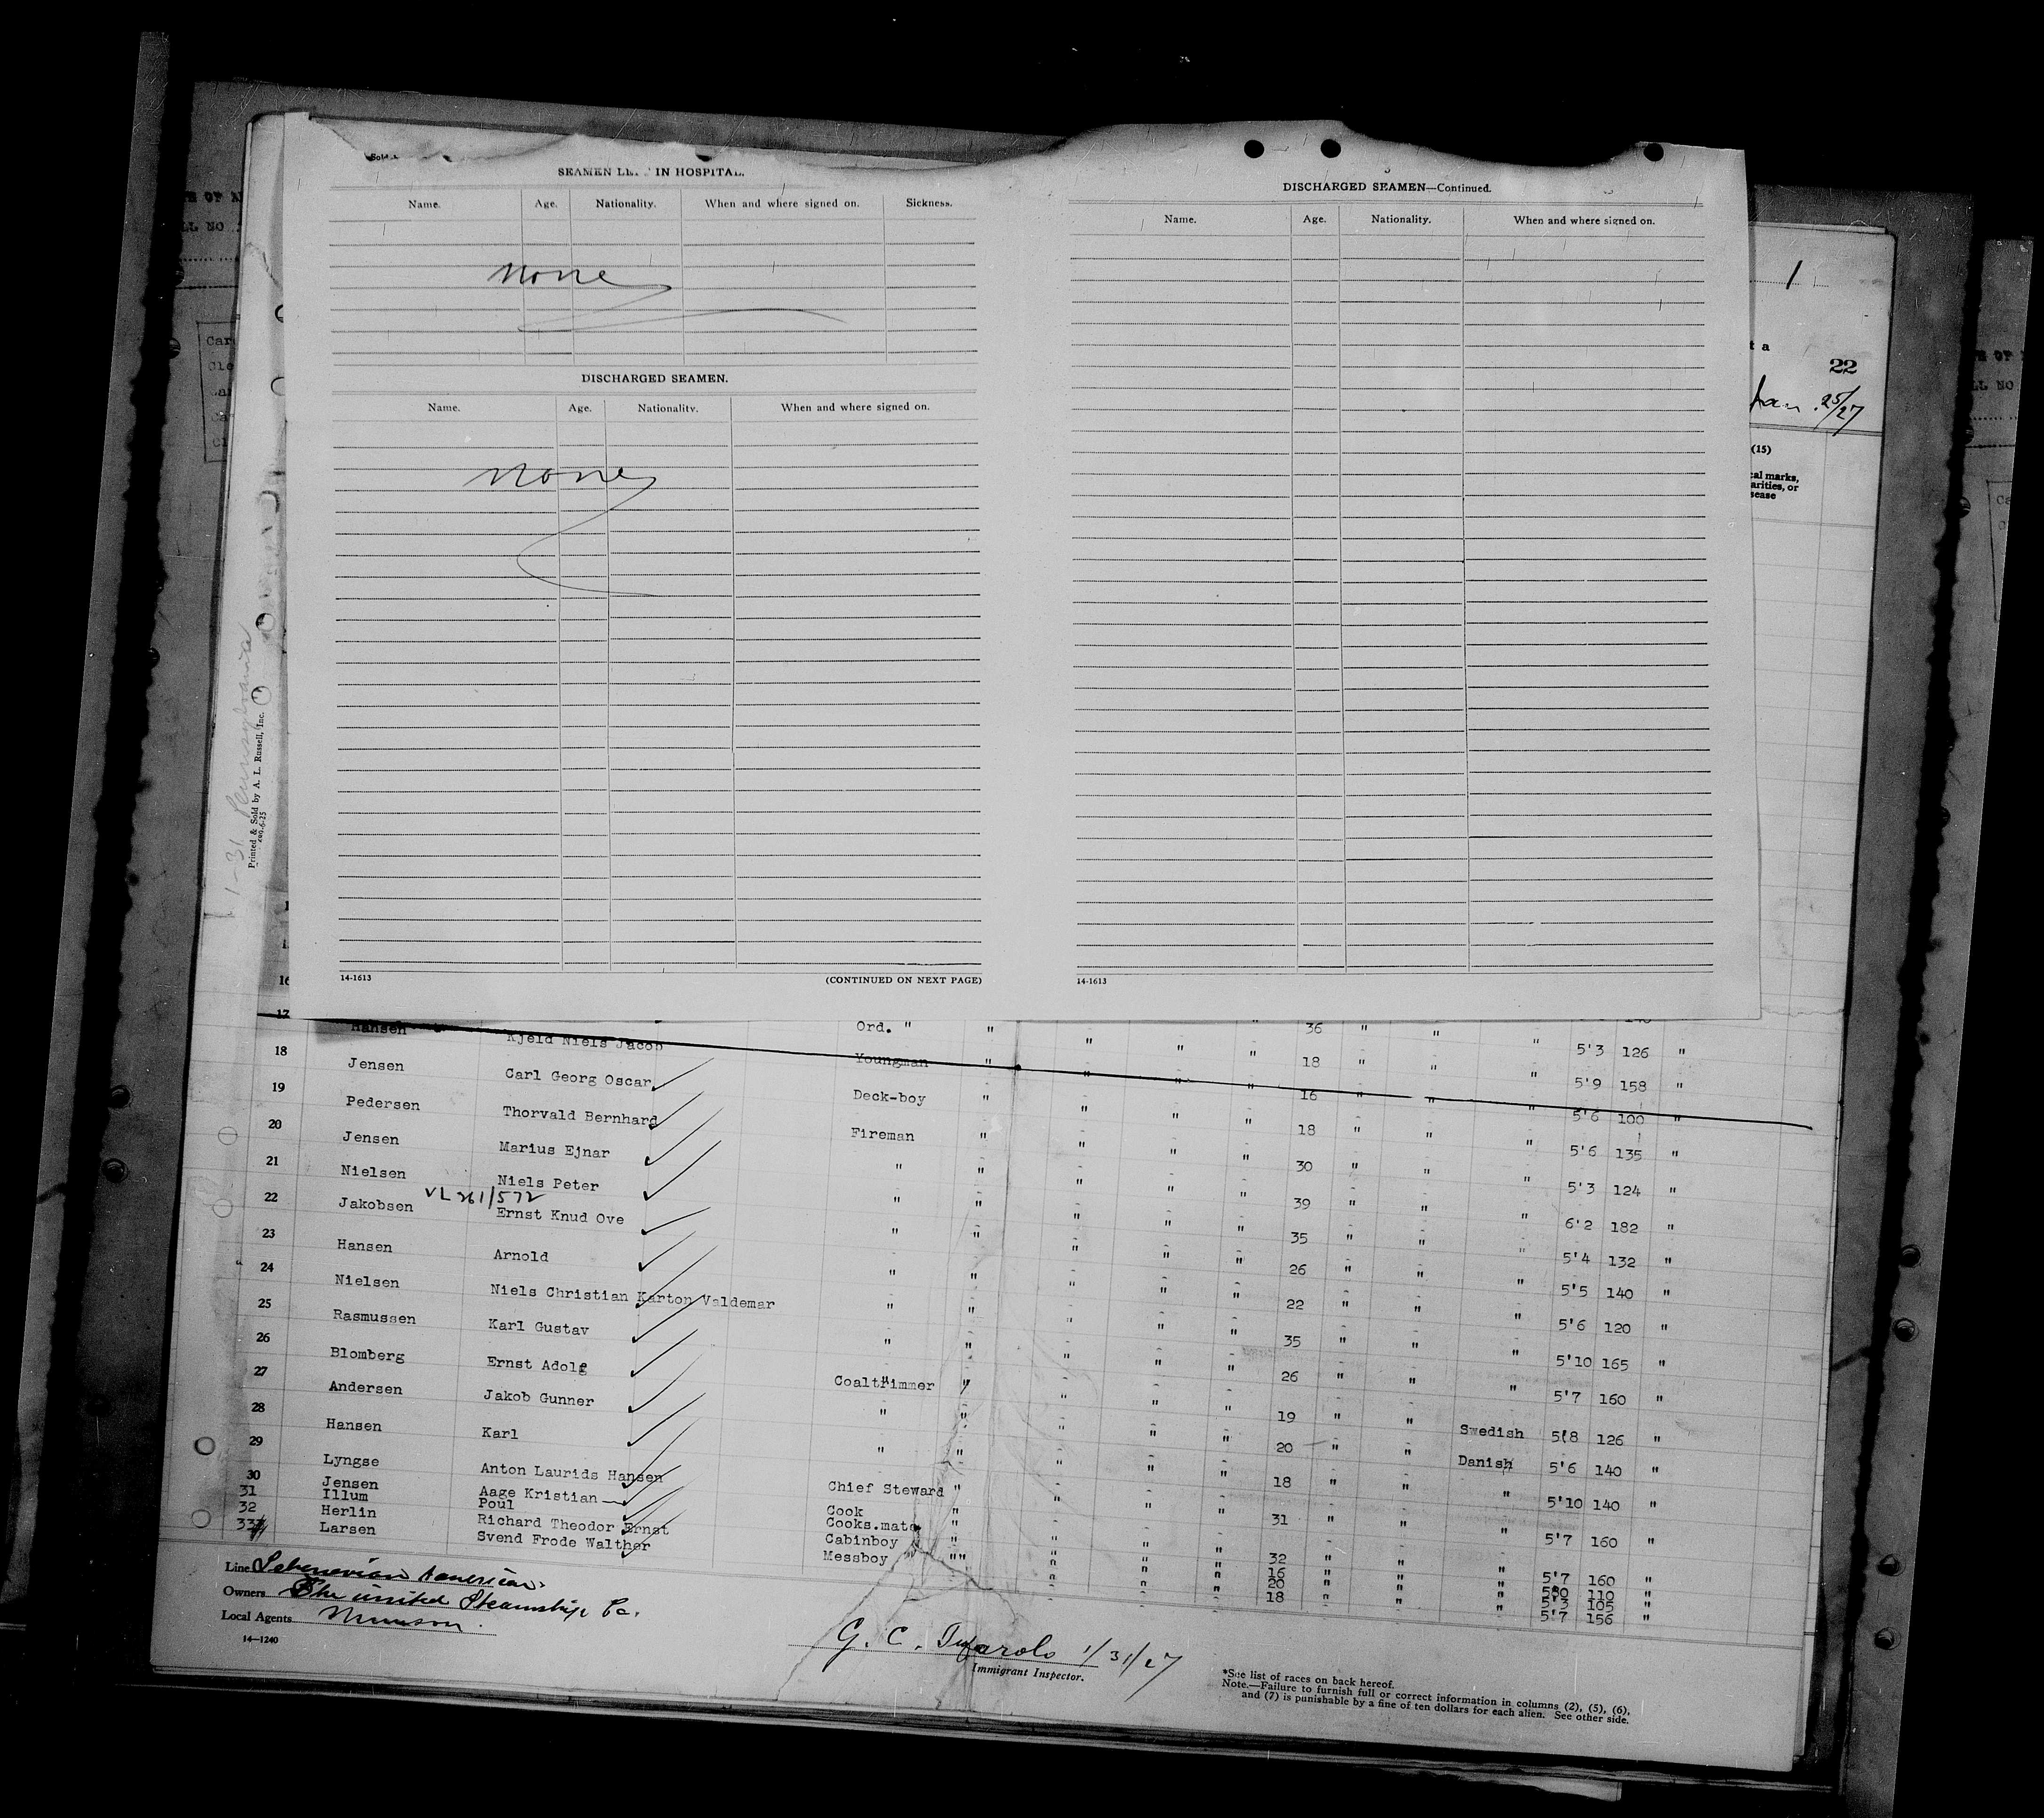 SEAMEN LE IN HOSPITAL.
Name. Age. Nationality. When and where signed on. Sickness.
none
DISCHARGED SEAMEN.
Name. Age. Nationality. When and where signed on.
none
14-1613 (CONTINUED ON NEXT PAGE)
DISCHARGED SEAMEN—Continued.
Name. Age. Nationality. When and where signed on.
14-1613
1
t a
22
Jan. 25/27
(15)
cal marks,
arities, or
sease
1-31 Pennsylvania
Printed & Sold by A. L. Russell, Inc.
16
17 Hansen Kjeld Niels Jacob Ord. " " " " " 36 " " " 5'3 126 "
18 Jensen Carl Georg Oscar Youngman " " " " 18 " " " 5'9 158 "
19 Pedersen Thorvald Bernhard Deck-boy " " " " 16 " " " 5'6 100 "
20 Jensen Marius Ejnar Fireman " " " " 18 " " " 5'6 135 "
21 Nielsen Niels Peter " " " " " 30 " " " 5'3 124 "
VL 261/572
22 Jakobsen Ernst Knud Ove " " " " " 39 " " " 6'2 182 "
23 Hansen Arnold " " " " " 35 " " " 5'4 132 "
24 Nielsen Niels Christian Karton Valdemar " " " " " 26 " " " 5'5 140 "
25 Rasmussen Karl Gustav " " " " " 22 " " " 5'6 120 "
26 Blomberg Ernst Adolf " " " " " 35 " " " 5'10 165 "
27 Andersen Jakob Gunner Coaltrimmer " " " " 26 " " " 5'7 160 "
28 Hansen Karl " " " " " 19 " " Swedish 5'8 126 "
29 Lyngse Anton Laurids Hansen " " " " " 20 " " Danish 5'6 140 "
30 Jensen Aage Kristian Chief Steward " " " " 18 " " " 5'10 140 "
31 Illum Poul Cook " " " " 31 " " " 5'7 160 "
32 Herlin Richard Theodor Ernst Cooks.mate " " " " 32 " " " 5'7 160 "
33 Larsen Svend Frode Walther Cabinboy " " " " 16 " " " 110 "
Messboy " " " " " 20 " " " 5'3 105 "
18 " " " 5'7 156 "
Line American
Owners The united Steamship Co.
Local Agents Munson.
14—1240
G. C. 1/31/27
Immigrant Inspector.
*See list of races on back hereof.
Note.—Failure to furnish full or correct information in columns (2), (5), (6),
and (7) is punishable by a fine of ten dollars for each alien. See other side.